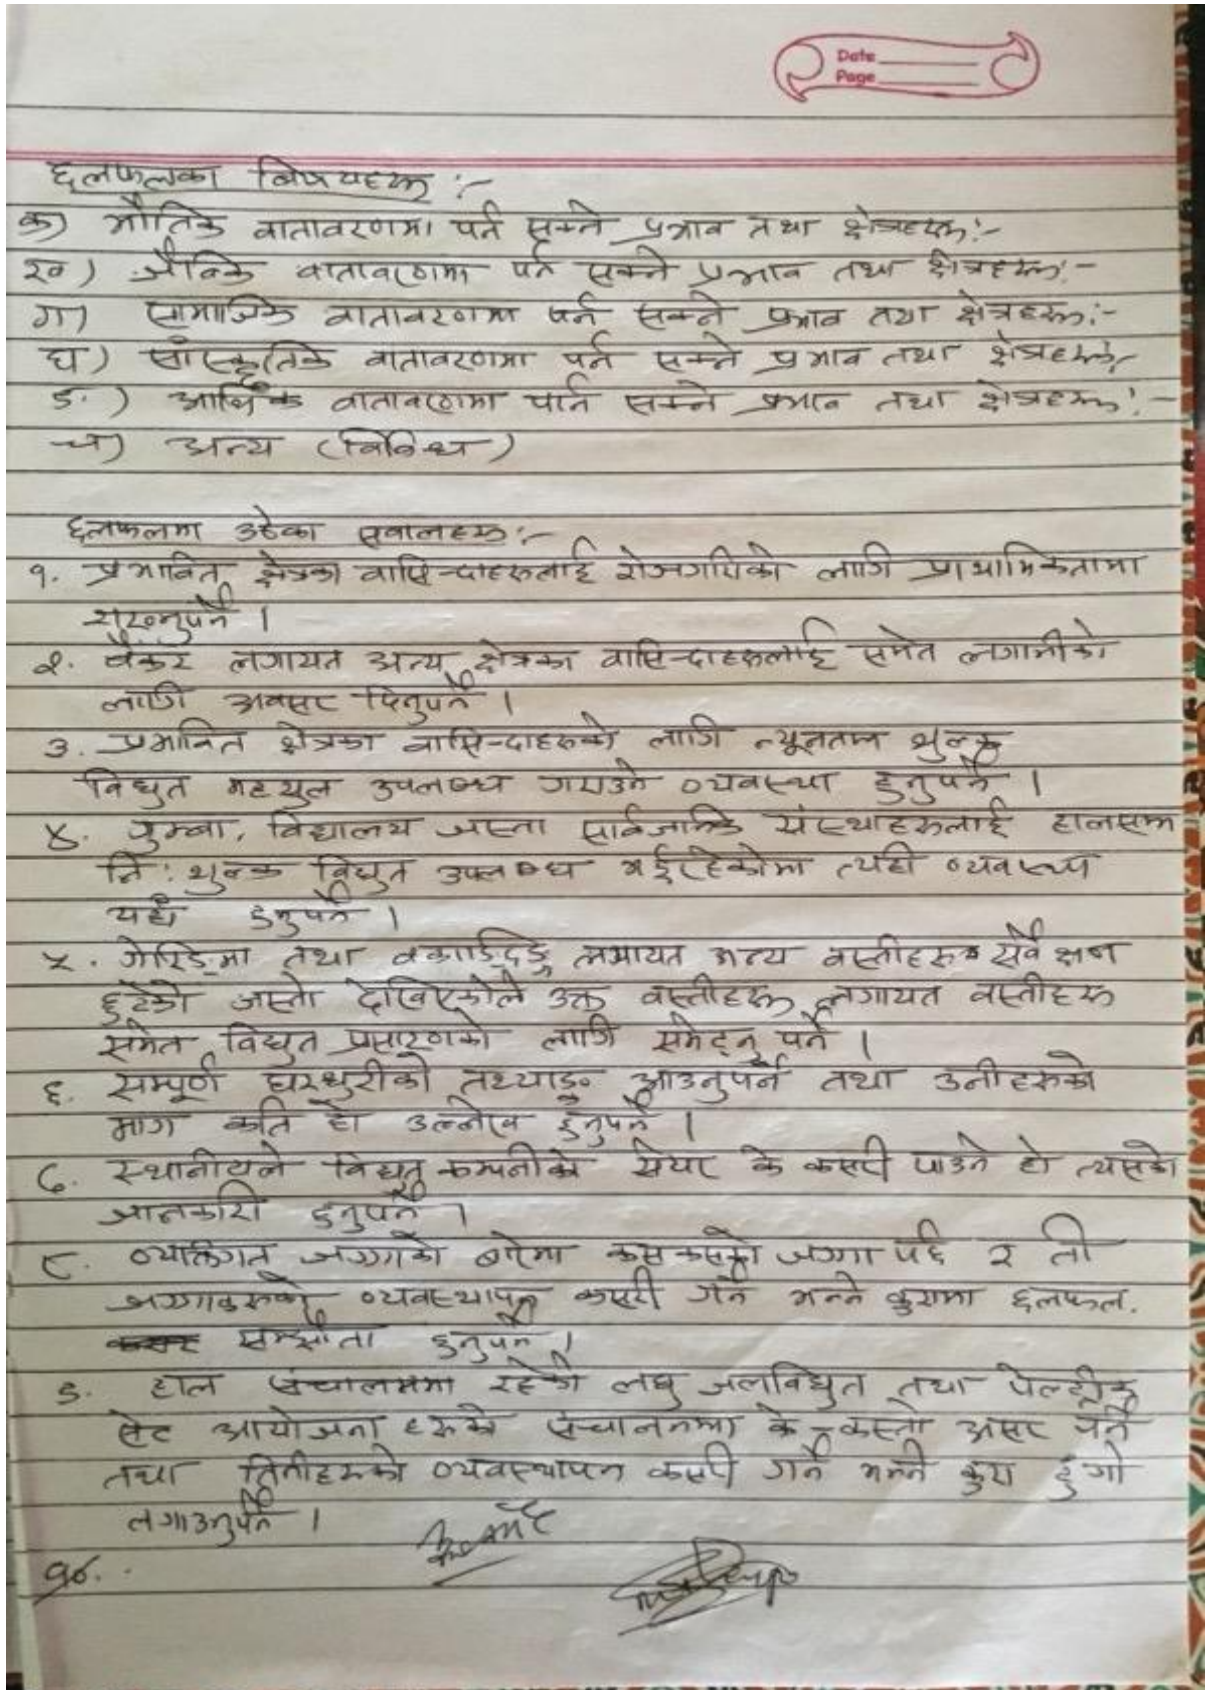 Date
Page
छलफलका बिषयहरू :-
क) भौतिक वातावरणमा पर्न सक्ने प्रभाव तथा क्षेत्रहरू:-
ख) जैविक वातावरणमा पर्न सक्ने प्रभाव तथा क्षेत्रहरू:-
ग) सामाजिक वातावरणमा पर्न सक्ने प्रभाव तथा क्षेत्रहरू:-
घ) सांस्कृतिक वातावरणमा पर्न सक्ने प्रभाव तथा क्षेत्रहरू:-
ङ) आर्थिक वातावरणमा पार्न सक्ने प्रभाव तथा क्षेत्रहरू:-
च) अन्य (विविध)
छलफलमा उठेका सवालहरू:-
१. प्रभावित क्षेत्रका वासिन्दाहरुलाई रोजगारीको लागि प्राथामिकतामा
राख्नुपर्ने ।
२. बैंकर लगायत अन्य क्षेत्रका वासिन्दाहरुलाई समेत लगानीको
लागि अवसर दिनुपर्ने ।
३. प्रभावित क्षेत्रका वासिन्दाहरुको लागि न्यूनतम शुल्क
विधुत महशुल उपलब्ध गराउने व्यवस्था हुनुपर्ने ।
४. गुम्बा, विद्यालय जस्ता सार्वजानिक संस्थाहरुलाई हालसम्म
नि:शुल्क विधुत उपलब्ध भईरहेकोमा त्यही व्यवस्था
यहाँ हुनुपर्ने ।
५. तथा लगायत अन्य वस्तीहरु सर्वेक्षण
छुटेको जस्तो देखिएकोले उक्त वस्तीहरू लगायत वस्तीहरु
समेत विधुत प्रसारणको लागि समेट्नु पर्ने ।
६. सम्पूर्ण घरधुरीको तथ्याङ्क आउनुपर्ने तथा उनीहरुको
माग कति हो उल्लेख हुनुपर्ने ।
७. स्थानीयले विधुत कम्पनीको सेयर के कसरी पाउने हो त्यसको
जानकारी हुनुपर्ने ।
८. व्यक्तिगत जग्गाको बारेमा कस कसको जग्गा पर्छ र ती
जग्गाहरुको व्यवस्थापन कसरी गर्ने भन्ने कुरामा छलफल.
सम्झौता हुनुपर्ने ।
९. हाल संचालनमा रहेको लघु जलविधुत तथा पेल्ट्रीक
सेट आयोजना हरुको संचालनमा के-कस्तो असर पर्ने
तथा तिनीहरुको व्यवस्थापन कसरी गर्ने भन्ने कुरा टुंगो
लगाउनुपर्ने ।
१०.